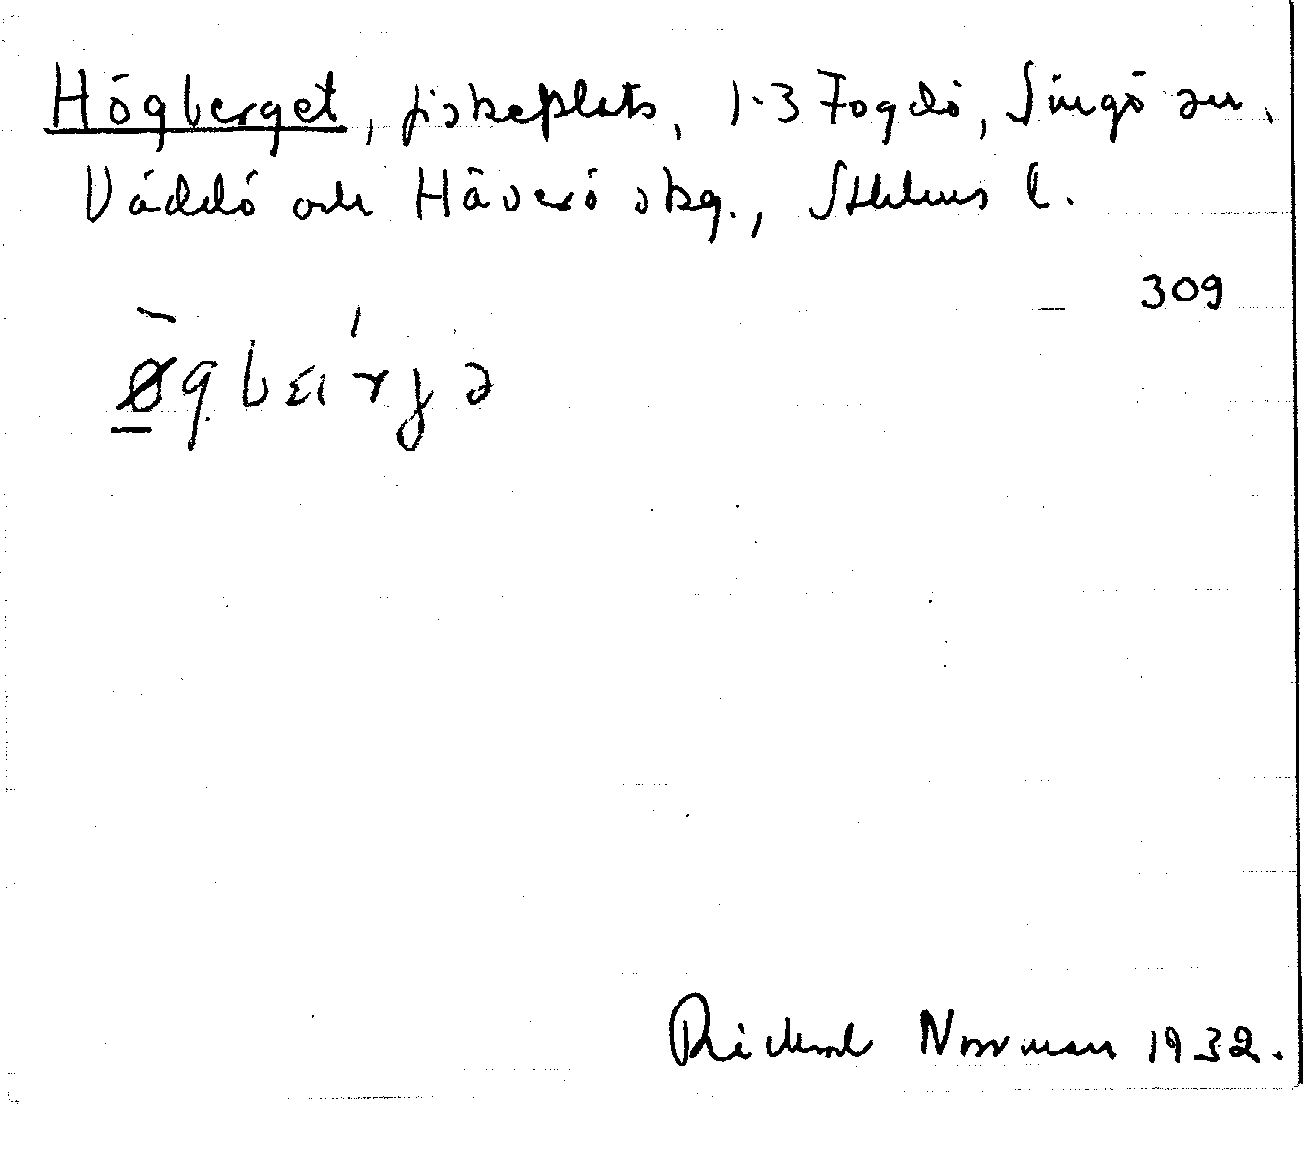 Högberget, fiskeplats, 1-3 Fogdö, Singö sn.
Väddö och Häverö skg., Sthlms l.
309
øgbεırjə
Rickard Norrman 1932.